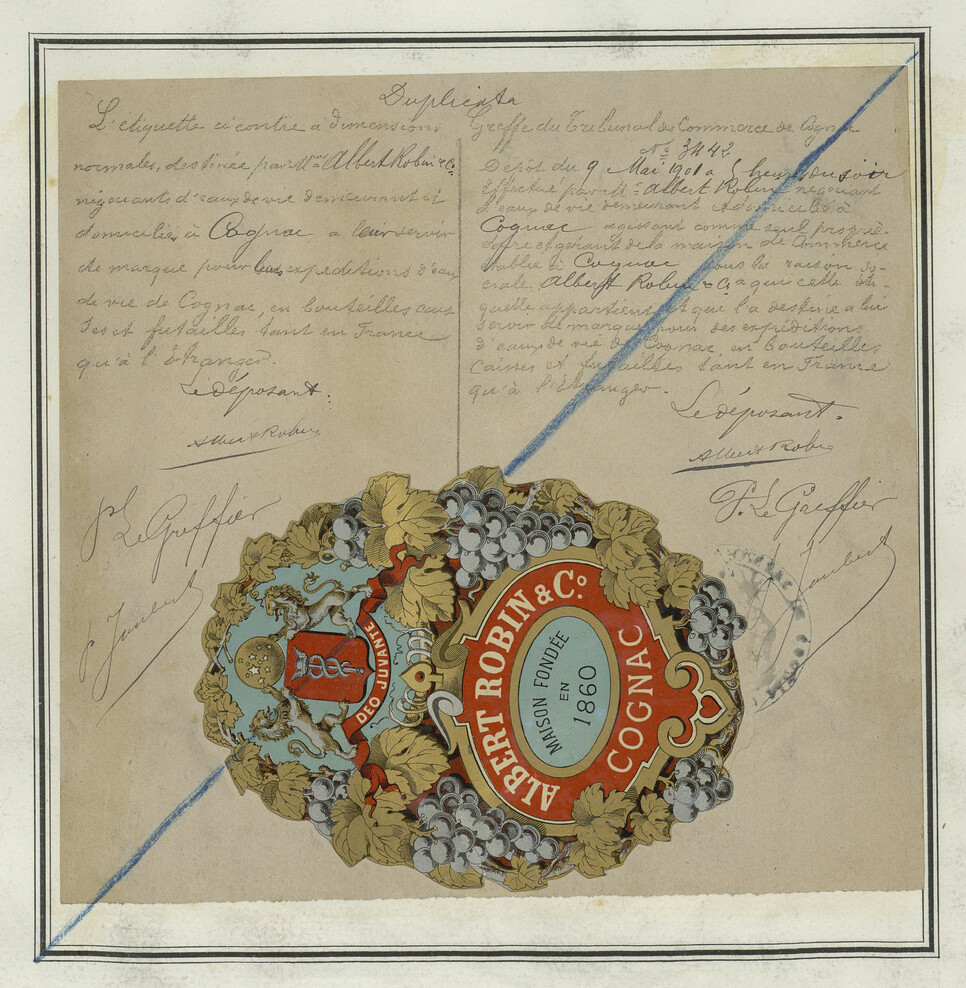 Duplicata
L'étiquette ci contre à dimensions
normales, destinée par Mr Albert Robin & Co
négociants d'eaux de vie demeurant et
domiciliés à Cognac a leur servir
de marque pour leurs expéditions d'eau
de vie de Cognac, en bouteilles cais
ses et futailles tant en France
qu'à l'Étranger.
Le déposant.
Albert Robin
Pr Le Greffier
Greffe du Tribunal de Commerce de Cognac
No 3442
Dépôt du 9 Mai 1901 à 5 heures du soir
Effectué par Mr Albert Robin négociant
d'eaux de vie demeurant et domicilié à
Cognac agissant comme seul proprié-
taire et gérant de la maison de Commerce
établie à Cognac sous la raison so-
ciale Albert Robin & Co a qui cette éti-
quette appartient et qui l'a destinée a lui
servir de marque pour des expéditions
d'eaux de vie de Cognac en bouteilles
caisses et futailles tant en France
qu'à l'étranger.
Le déposant.
Albert Robin
P. Le Greffier
DEO JUVANTE
ALBERT ROBIN & Co.
MAISON FONDÉE
EN
1860
COGNAC